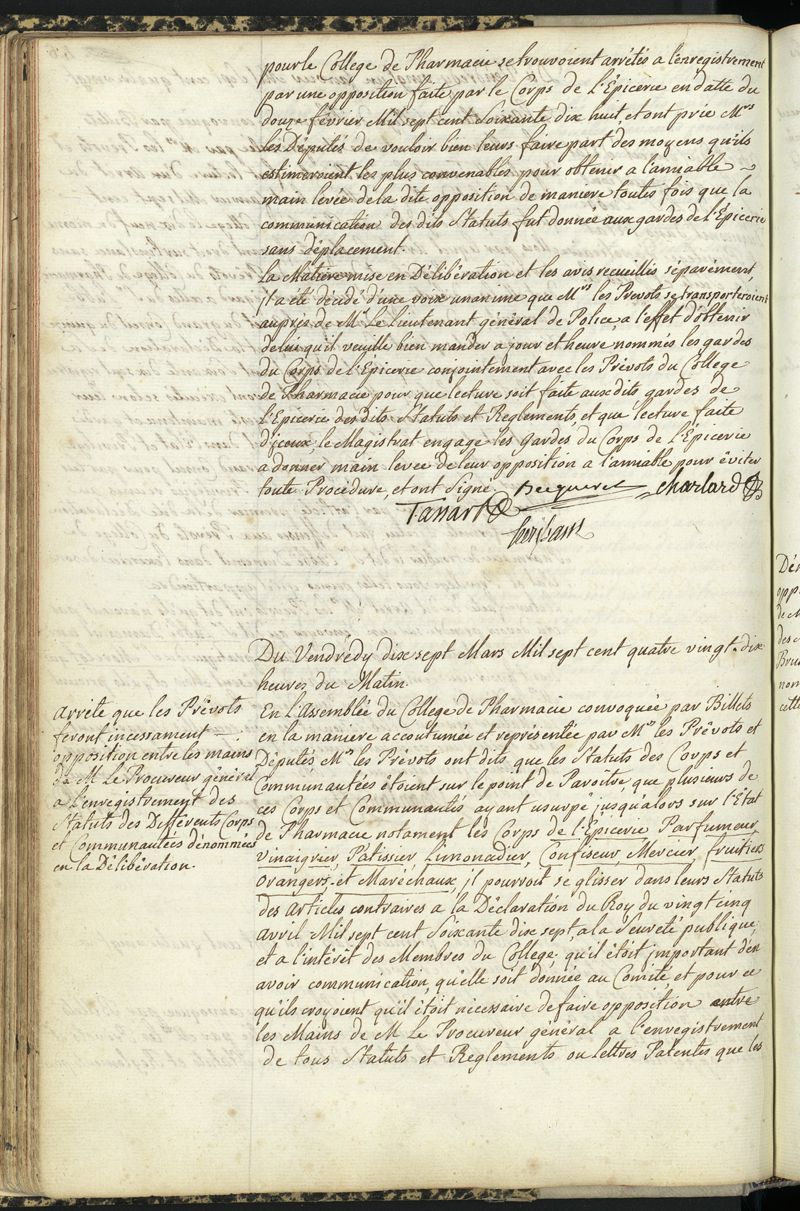 pour le College de Pharmacie se trouvoient arrêtés a l'enregistrement
par une opposition faite par le Corps de l'Épicerie en datte du
douze février Mil sept cent Soixante dix huit, et ont prié Mrs
les Députés de vouloir bien leurs faire part des moyens qu'ils
estimeroient les plus convenables pour obtenir a l'amiable ~
main levée de la dite opposition de maniere toutes fois que la
communication des dits Statuts fut donnée aux gardes de l'Épicerie
sans déplacement.
La Matiere mise en Délibération et les avis recueillis séparément,
il a été décidé d'une voix unanime que Mrs les Prevots se transporteroient
auprès de Mr Le Lieutenant général de Police, a l'effet d'obtenir
de lui qu'il veuille bien mander a jour et heure nommés les gardes
du Corps de l'Épicerie conjointement avec les Prévots du College
de Pharmacie pour que lecture soit faite auxdits gardes de
l'Epicerie des dits Statuts et Reglements, et que lecture faite
d'iceux, le Magistrat engage les gardes du Corps de L'Épicerie
a donner main levée de leur opposition a l'amiable pour éviter
toute Procédure, et ont Signé. Becqueret charlard
Tassart
Du Vendrédy dix sept Mars Mil sept cent quatre vingt. dix
heures du Matin.
En L'Assemblée du College de Pharmacie convoquée par Billets
en la maniere accoutumée et représentée par Mrs les Prêvots et
Députés Mrs les Prévots ont dits que les Statuts des Corps et
Communautées étoient sur le point de Paroitre, que plusieurs de
ces Corps et Communautés ayant usurpé jusqu'alors sur l'Etat
de Pharmacie notament les Corps de l'Épicerie Parfumeur,
Vinaigrier, Patissier, Limonadier, Confiseur Mercier, fruitiers
Orangers, et Maréchaux, il pourroit se glisser dans leurs Statuts
des Articles contraires a la Déclaration du Roy du vingt cinq
Avril Mil sept cent Soixante dix sept, a la Seureté publique,
et a l'intérêt des Membres du College, qu'il étoit important d'en
avoir communication, qu'elle soit donnée au Comité, et pour ce
qu'ils croyoient qu'il étoit nécessaire de faire opposition entre
les Mains de M Le Procureur général a l'enregistrement
de tous Statuts et Reglements ou lettres Patentes que les
Arrêté que les Prêvots
feront incessament
opposition entre les mains
de M Le Procureur général
a l'enregistrement des
Statuts des Differents Corps
et Communautées dénommées
en la Délibération.